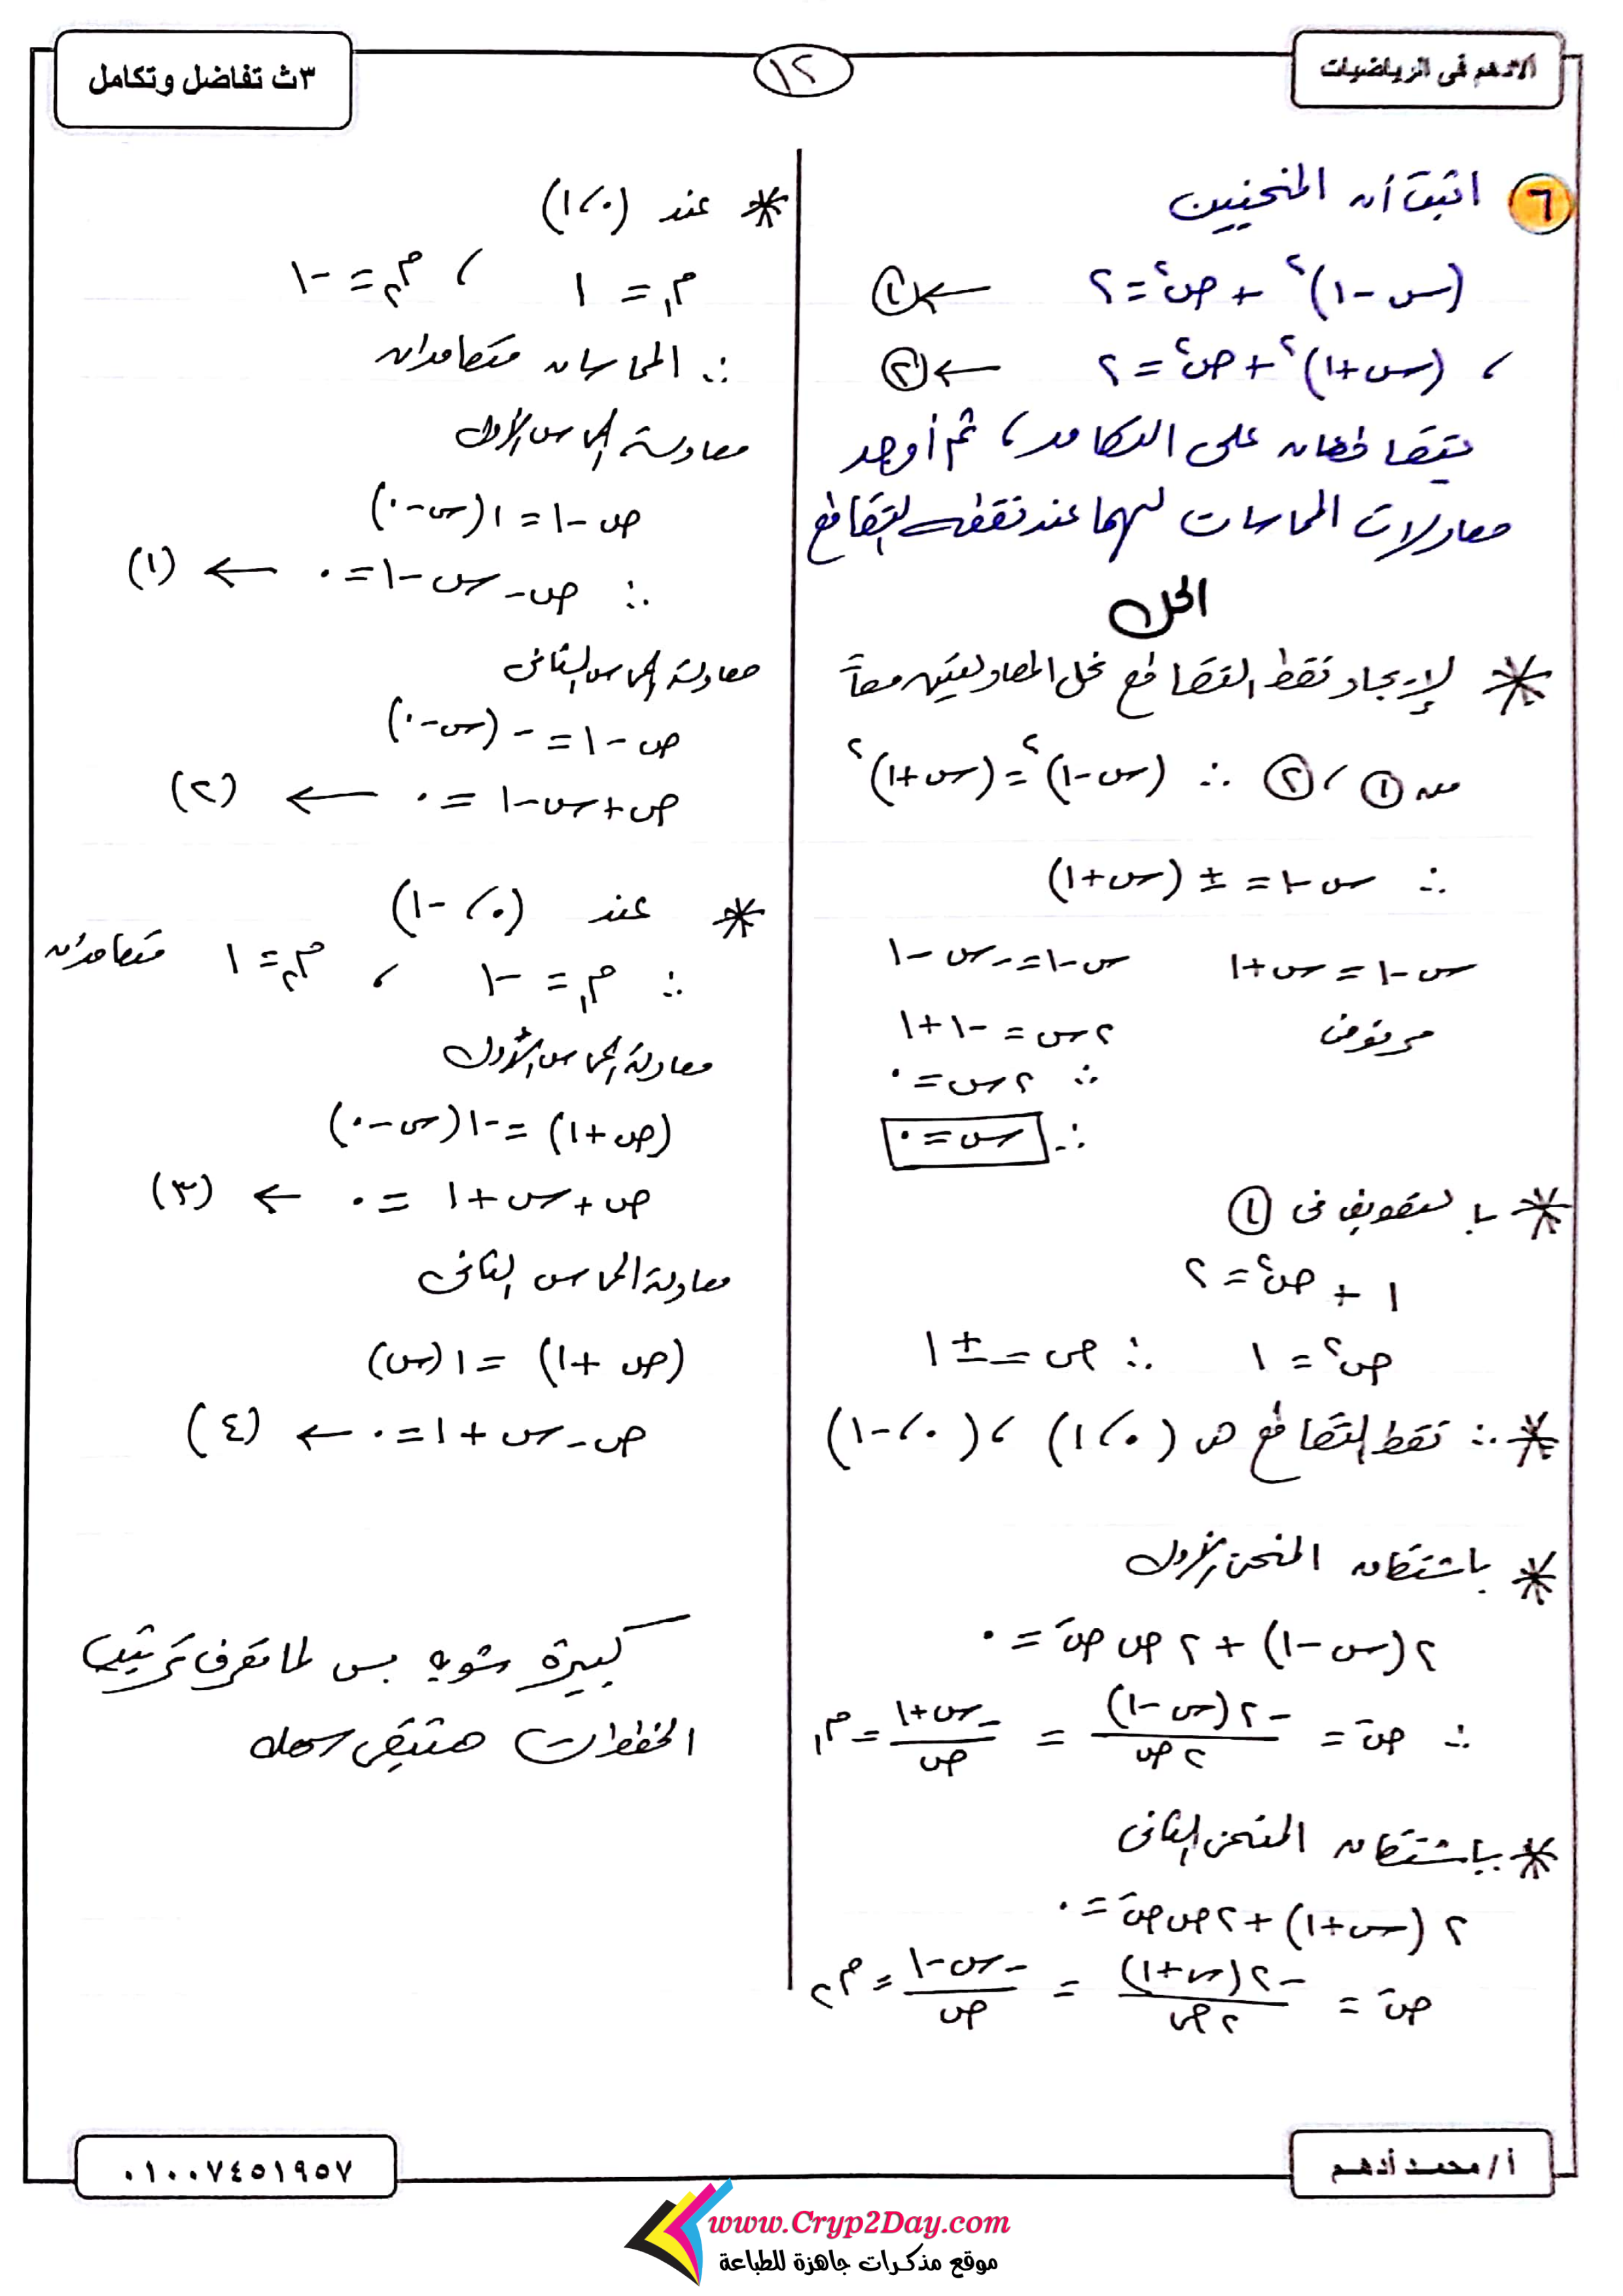 الأدهم فى الرياضيات
١٢
٣ث تفاضل وتكامل
٦ اثبت أن المنحنيين
(س - ١)² + ص² = ٢ ← ①
، (س + ١)² + ص² = ٢ ← ②
يتقاطعان على التعامد ، ثم أوجد
معادلات المماسات لهما عند نقطة التقاطع
الحل
* لإيجاد نقط التقاطع نحل المعادلتين معاً
من ① ، ② ∴ (س - ١)² = (س + ١)²
∴ س - ١ = ± (س + ١)
س - ١ = س + ١
مرفوض
س - ١ = - س - ١
٢ س = - ١ + ١
∴ ٢ س = ٠
∴ س = ٠
* بالتعويض فى ①
١ + ص² = ٢
ص² = ١ ∴ ص = ± ١
* ∴ نقط التقاطع هى (٠ ، ١) ، (٠ ، - ١)
* باشتقاق المنحنى الأول
٢ (س - ١) + ٢ ص صَ = ٠
∴ صَ = - ٢ (س - ١) / ٢ ص = - س + ١ / ص = م₁
* باشتقاق المنحنى الثانى
٢ (س + ١) + ٢ ص صَ = ٠
صَ = - ٢ (س + ١) / ٢ ص = - س - ١ / ص = م₂
* عند (٠ ، ١)
م₁ = ١ ، م₂ = - ١
∴ المماسان متعامدان
معادلة المماس الأول
ص - ١ = ١ (س - ٠)
∴ ص - س - ١ = ٠ ← (١)
معادلة المماس الثانى
ص - ١ = - (س - ٠)
ص + س - ١ = ٠ ← (٢)
* عند (٠ ، - ١)
∴ م₁ = - ١ ، م₂ = ١ متعامدان
معادلة المماس الأول
(ص + ١) = - ١ (س - ٠)
ص + س + ١ = ٠ ← (٣)
معادلة المماس الثانى
(ص + ١) = ١ (س)
ص - س + ١ = ٠ ← (٤)
كبيرة شويه بس لما تعرف ترتيب
الخطوات هتبقى سهله
أ / محمد أدهم
٠١٠٠٧٤٥١٩٥٧
www.Cryp2Day.com
موقع مذكرات جاهزة للطباعة